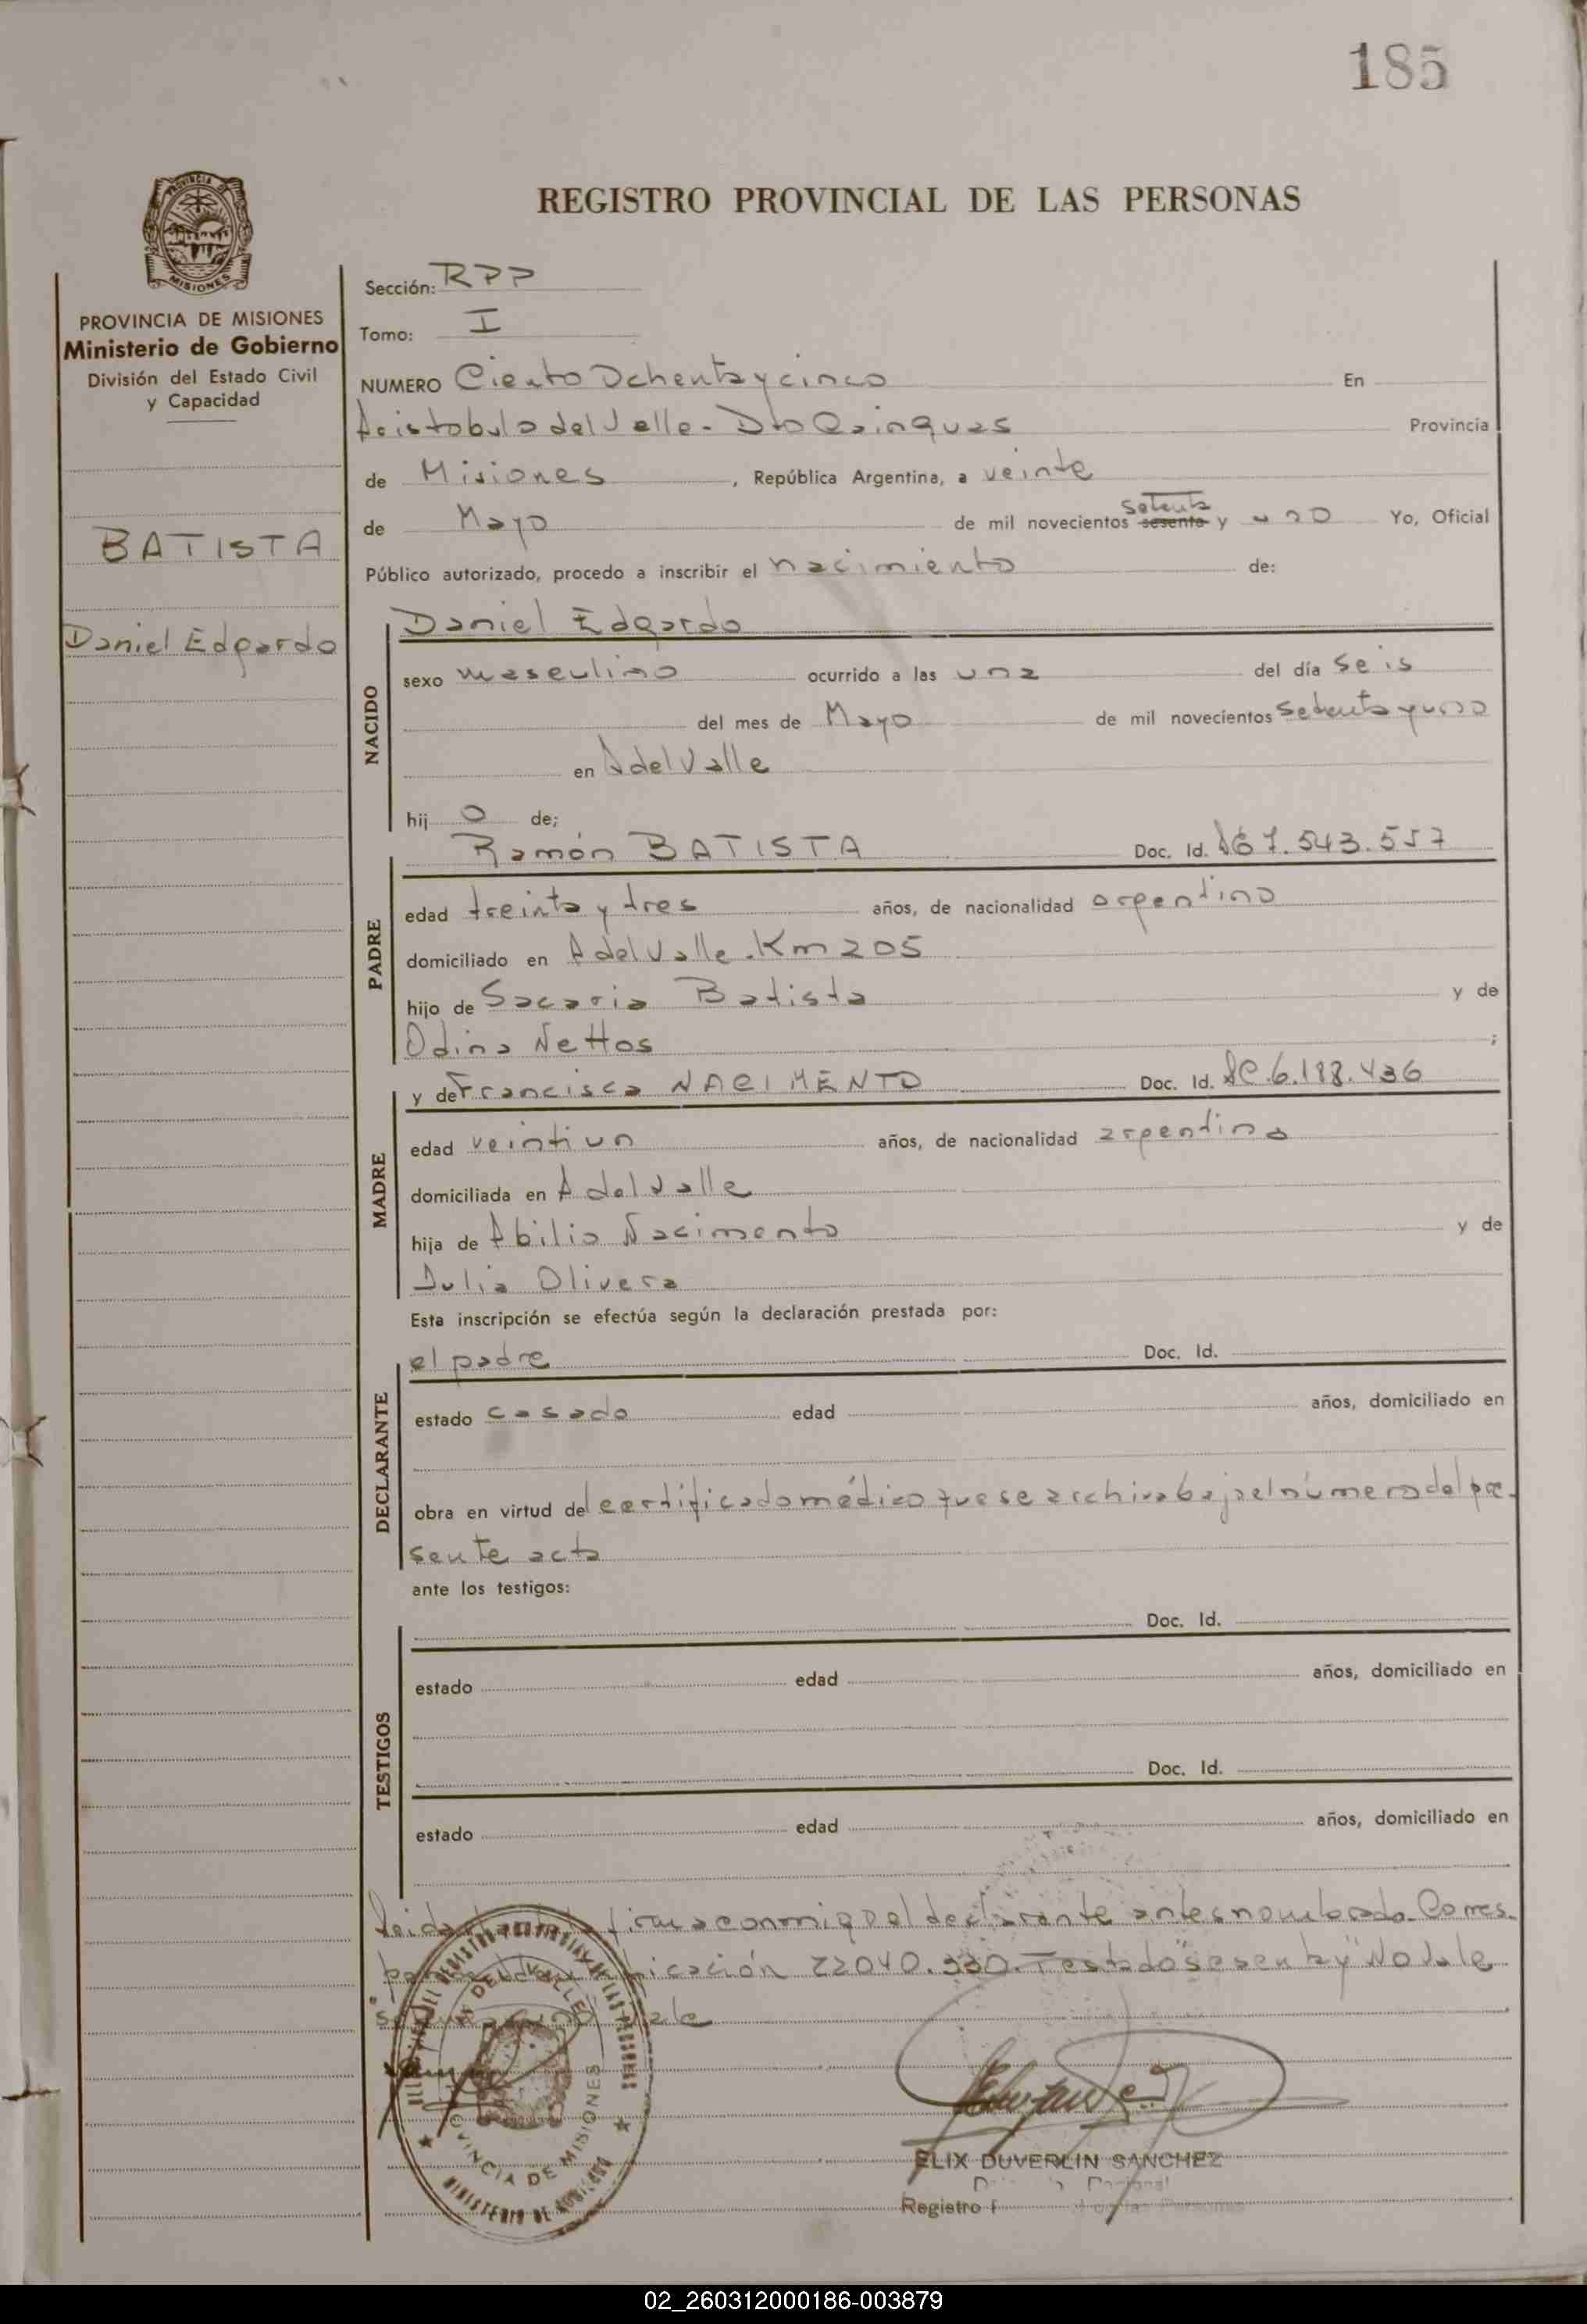 185
REGISTRO PROVINCIAL DE LAS PERSONAS
PROVINCIA DE MISIONES
Ministerio de Gobierno
División del Estado Civil
y Capacidad
BATISTA
Daniel Edgardo
Sección: RPP
Tomo: I
NUMERO Ciento Ochenta y cinco En
Aristobulo del Valle - Dto Cainguas Provincia
de Misiones, República Argentina, a veinte
setenta
de Mayo de mil novecientos sesenta y uno Yo, Oficial
Público autorizado, procedo a inscribir el nacimiento de:
NACIDO
Daniel Edgardo
sexo masculino ocurrido a las una del día seis
del mes de Mayo de mil novecientos Setenta y uno
en A del Valle
hijo de;
PADRE
Ramón BATISTA Doc. Id. 7.543.557
edad treinta y tres años, de nacionalidad argentino
domiciliado en A del Valle. Km 205
hijo de Sacaria Batista y de
Odina Nettos ;
MADRE
y de Francisca NACIMENTO Doc. Id. 6.188.436
edad veintiun años, de nacionalidad argentina
domiciliada en A del Valle
hija de Abilio Nacimento y de
Julia Olivera
Esta inscripción se efectúa según la declaración prestada por:
DECLARANTE
el padre Doc. Id.
estado casado edad años, domiciliado en
obra en virtud del certificado médico que se archiva bajo el número del pre-
sente acta
ante los testigos:
TESTIGOS
Doc. Id.
estado edad años, domiciliado en
Doc. Id.
estado edad años, domiciliado en
Leida firma conmigo el declarante antes nombrado. Corres-
22040.330. Testado "sesenta y" No Vale
vale
PROVINCIA DE MISIONES
MINISTERIO DE GOBIERNO
FELIX DUVERLIN SANCHEZ
Registro
02_260312000186-003879